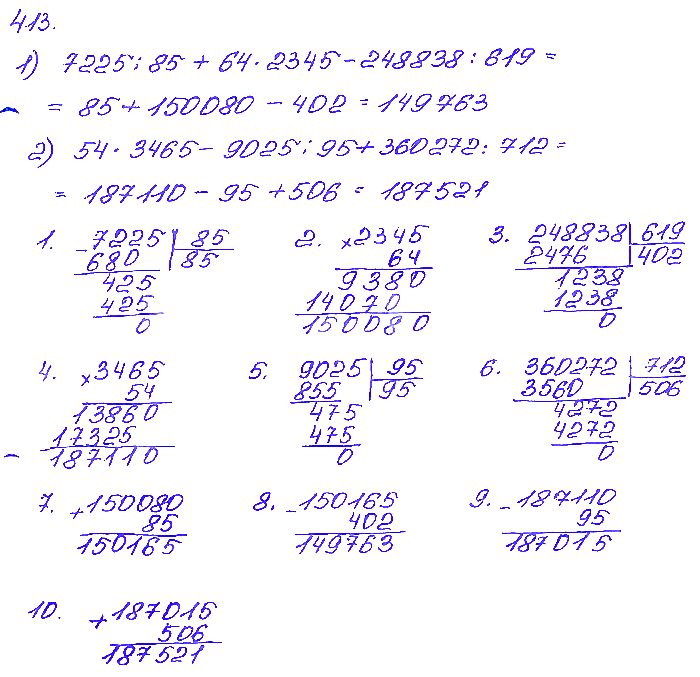 413.
1) 7225 : 85 + 64 · 2345 − 248838 : 619 =
= 85 + 150080 − 402 = 149763
2) 54 · 3465 − 9025 : 95 + 360272 : 712 =
= 187110 − 95 + 506 = 187521
1. − 7225 | 85
680 85
425
425
0
2. × 2345
64
9380
14070
150080
3. 248838 | 619
2476 402
1238
1238
0
4. × 3465
54
13860
17325
187110
5. 9025 | 95
855 95
475
475
0
6. 360272 | 712
3560 506
4272
4272
0
7. + 150080
85
150165
8. − 150165
402
149763
9. − 187110
95
187015
10. + 187015
506
187521